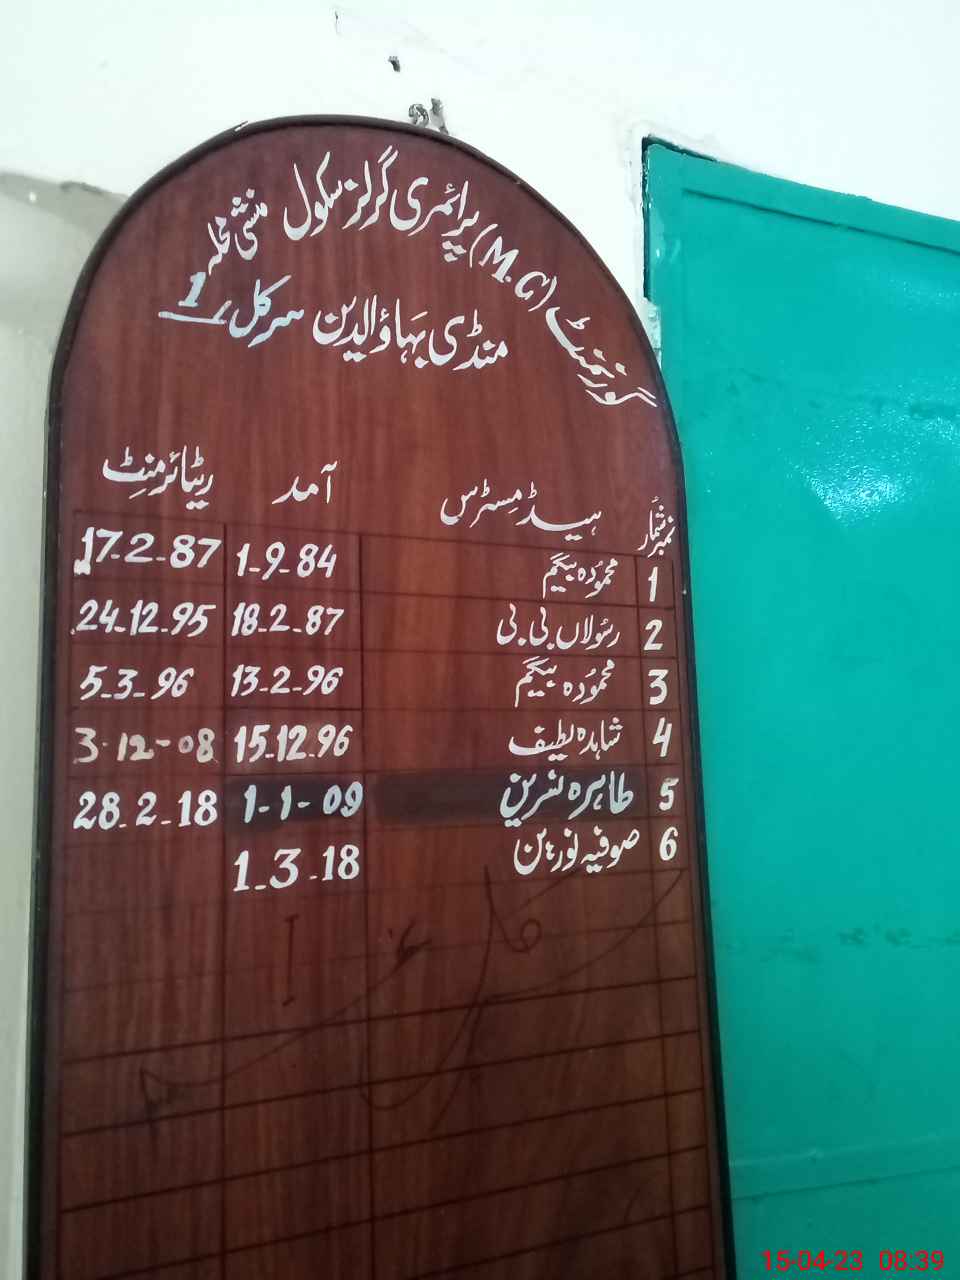 گورنمنٹ (M.C) پرائمری گرلز سکول منشی محلہ
منڈی بہاؤالدین سرکل 1
نمبر شمار ہیڈ مسٹرس آمد ریٹائرمنٹ
1 محمودہ بیگم 1-9-84 17-2-87
2 رسولاں بی بی 18-2-87 24-12-95
3 محمودہ بیگم 13-2-96 5-3-96
4 شاہدہ لطیف 15-12-96 3-12-08
5 طاہرہ نسرین 1-1-09 28-2-18
6 صوفیہ نورین 1-3-18
15-04-23 08:39